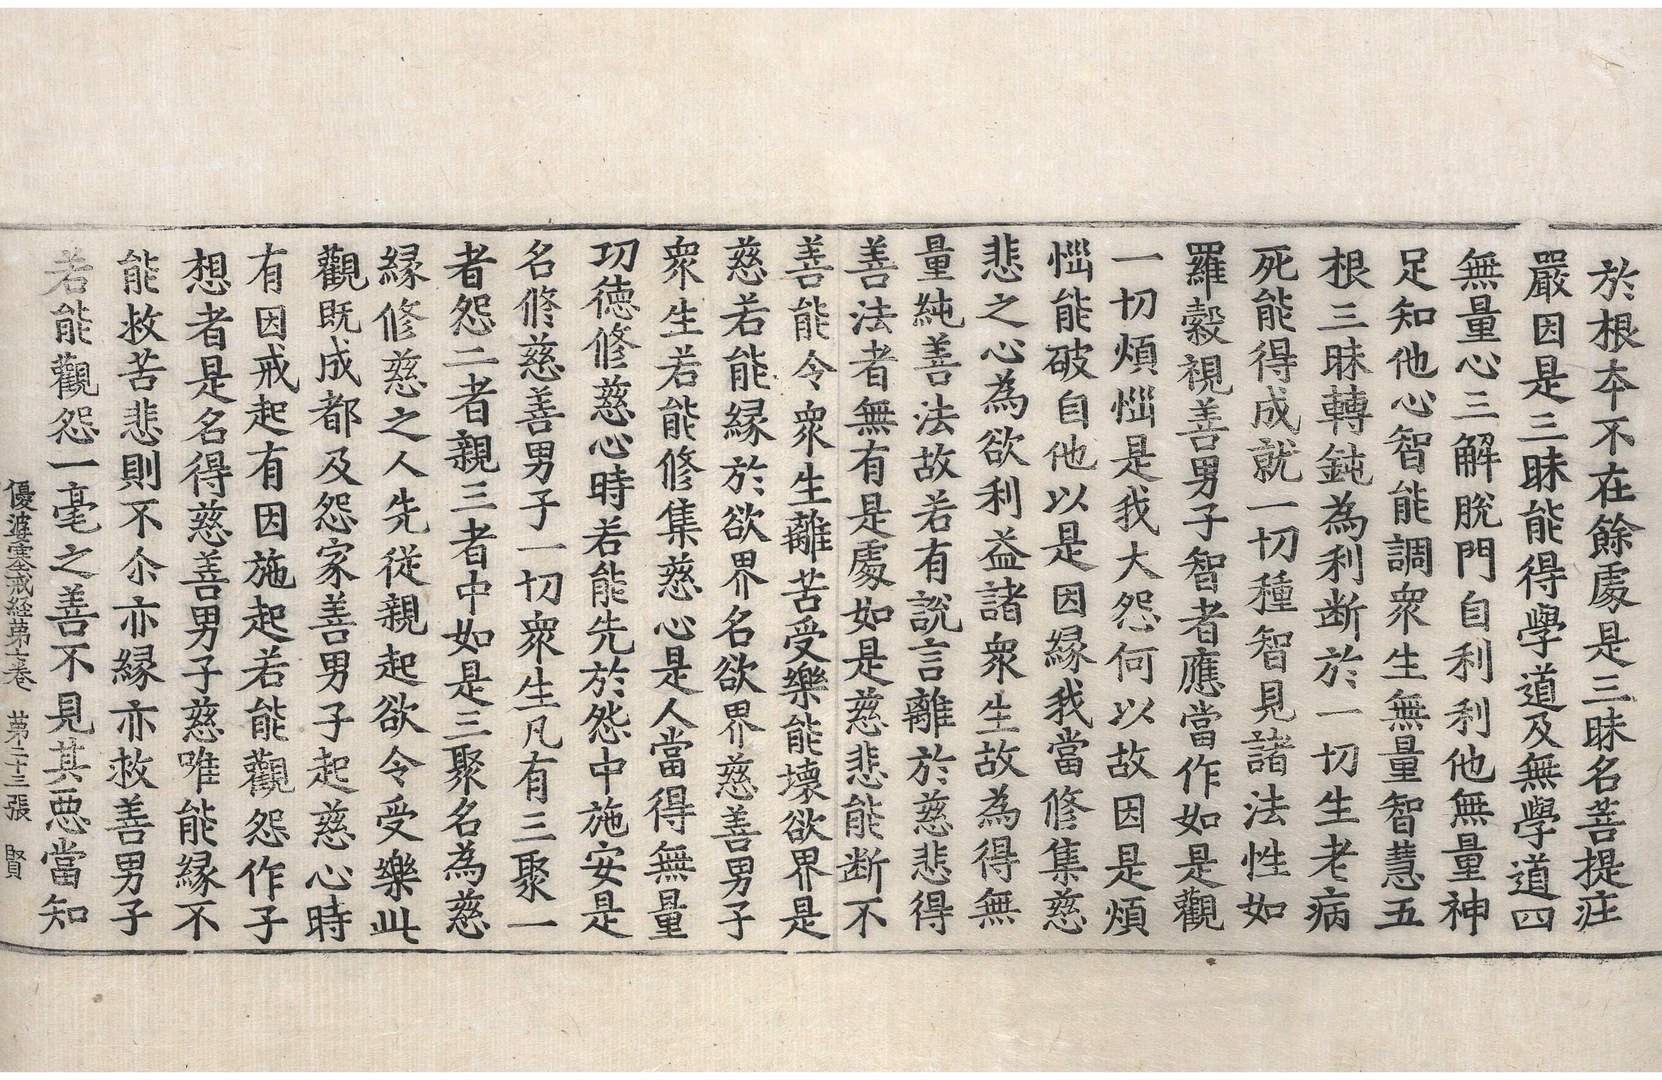 於根本不在餘處是三昧名菩提疘
嚴因是三昧能得學道及無學道四
無量心三解脫門自利利他無量神
足知他心智能調衆生無量智慧五
根三昧轉鈍為利断於一切生老病
死能得成就一切種智見諸法性如
羅縠視善男子智者應當作如是觀
一切煩惱是我大怨何以故因是煩
惱能破自他以是因縁我當修集慈
悲之心為欲利益諸衆生故為得無
量純善法故若有說言離於慈悲得
善法者無有是處如是慈悲能断不
善能令衆生離苦受樂能壞欲界是
慈若能縁於欲界名欲界慈善男子
衆生若能修集慈心是人當得無量
功德修慈心時若能先於怨中施安是
名修慈善男子一切衆生凡有三聚一
者怨二者親三者中如是三聚名為慈
縁修慈之人先從親起欲令受樂此
觀既成都及怨家善男子起慈心時
有因戒起有因施起若能觀怨作子
想者是名得慈善男子慈唯能縁不
能救苦悲則不尒亦縁亦救善男子
若能觀怨一毫之善不見其惡當知
優婆塞戒経苐七卷　苐二十三張　賢